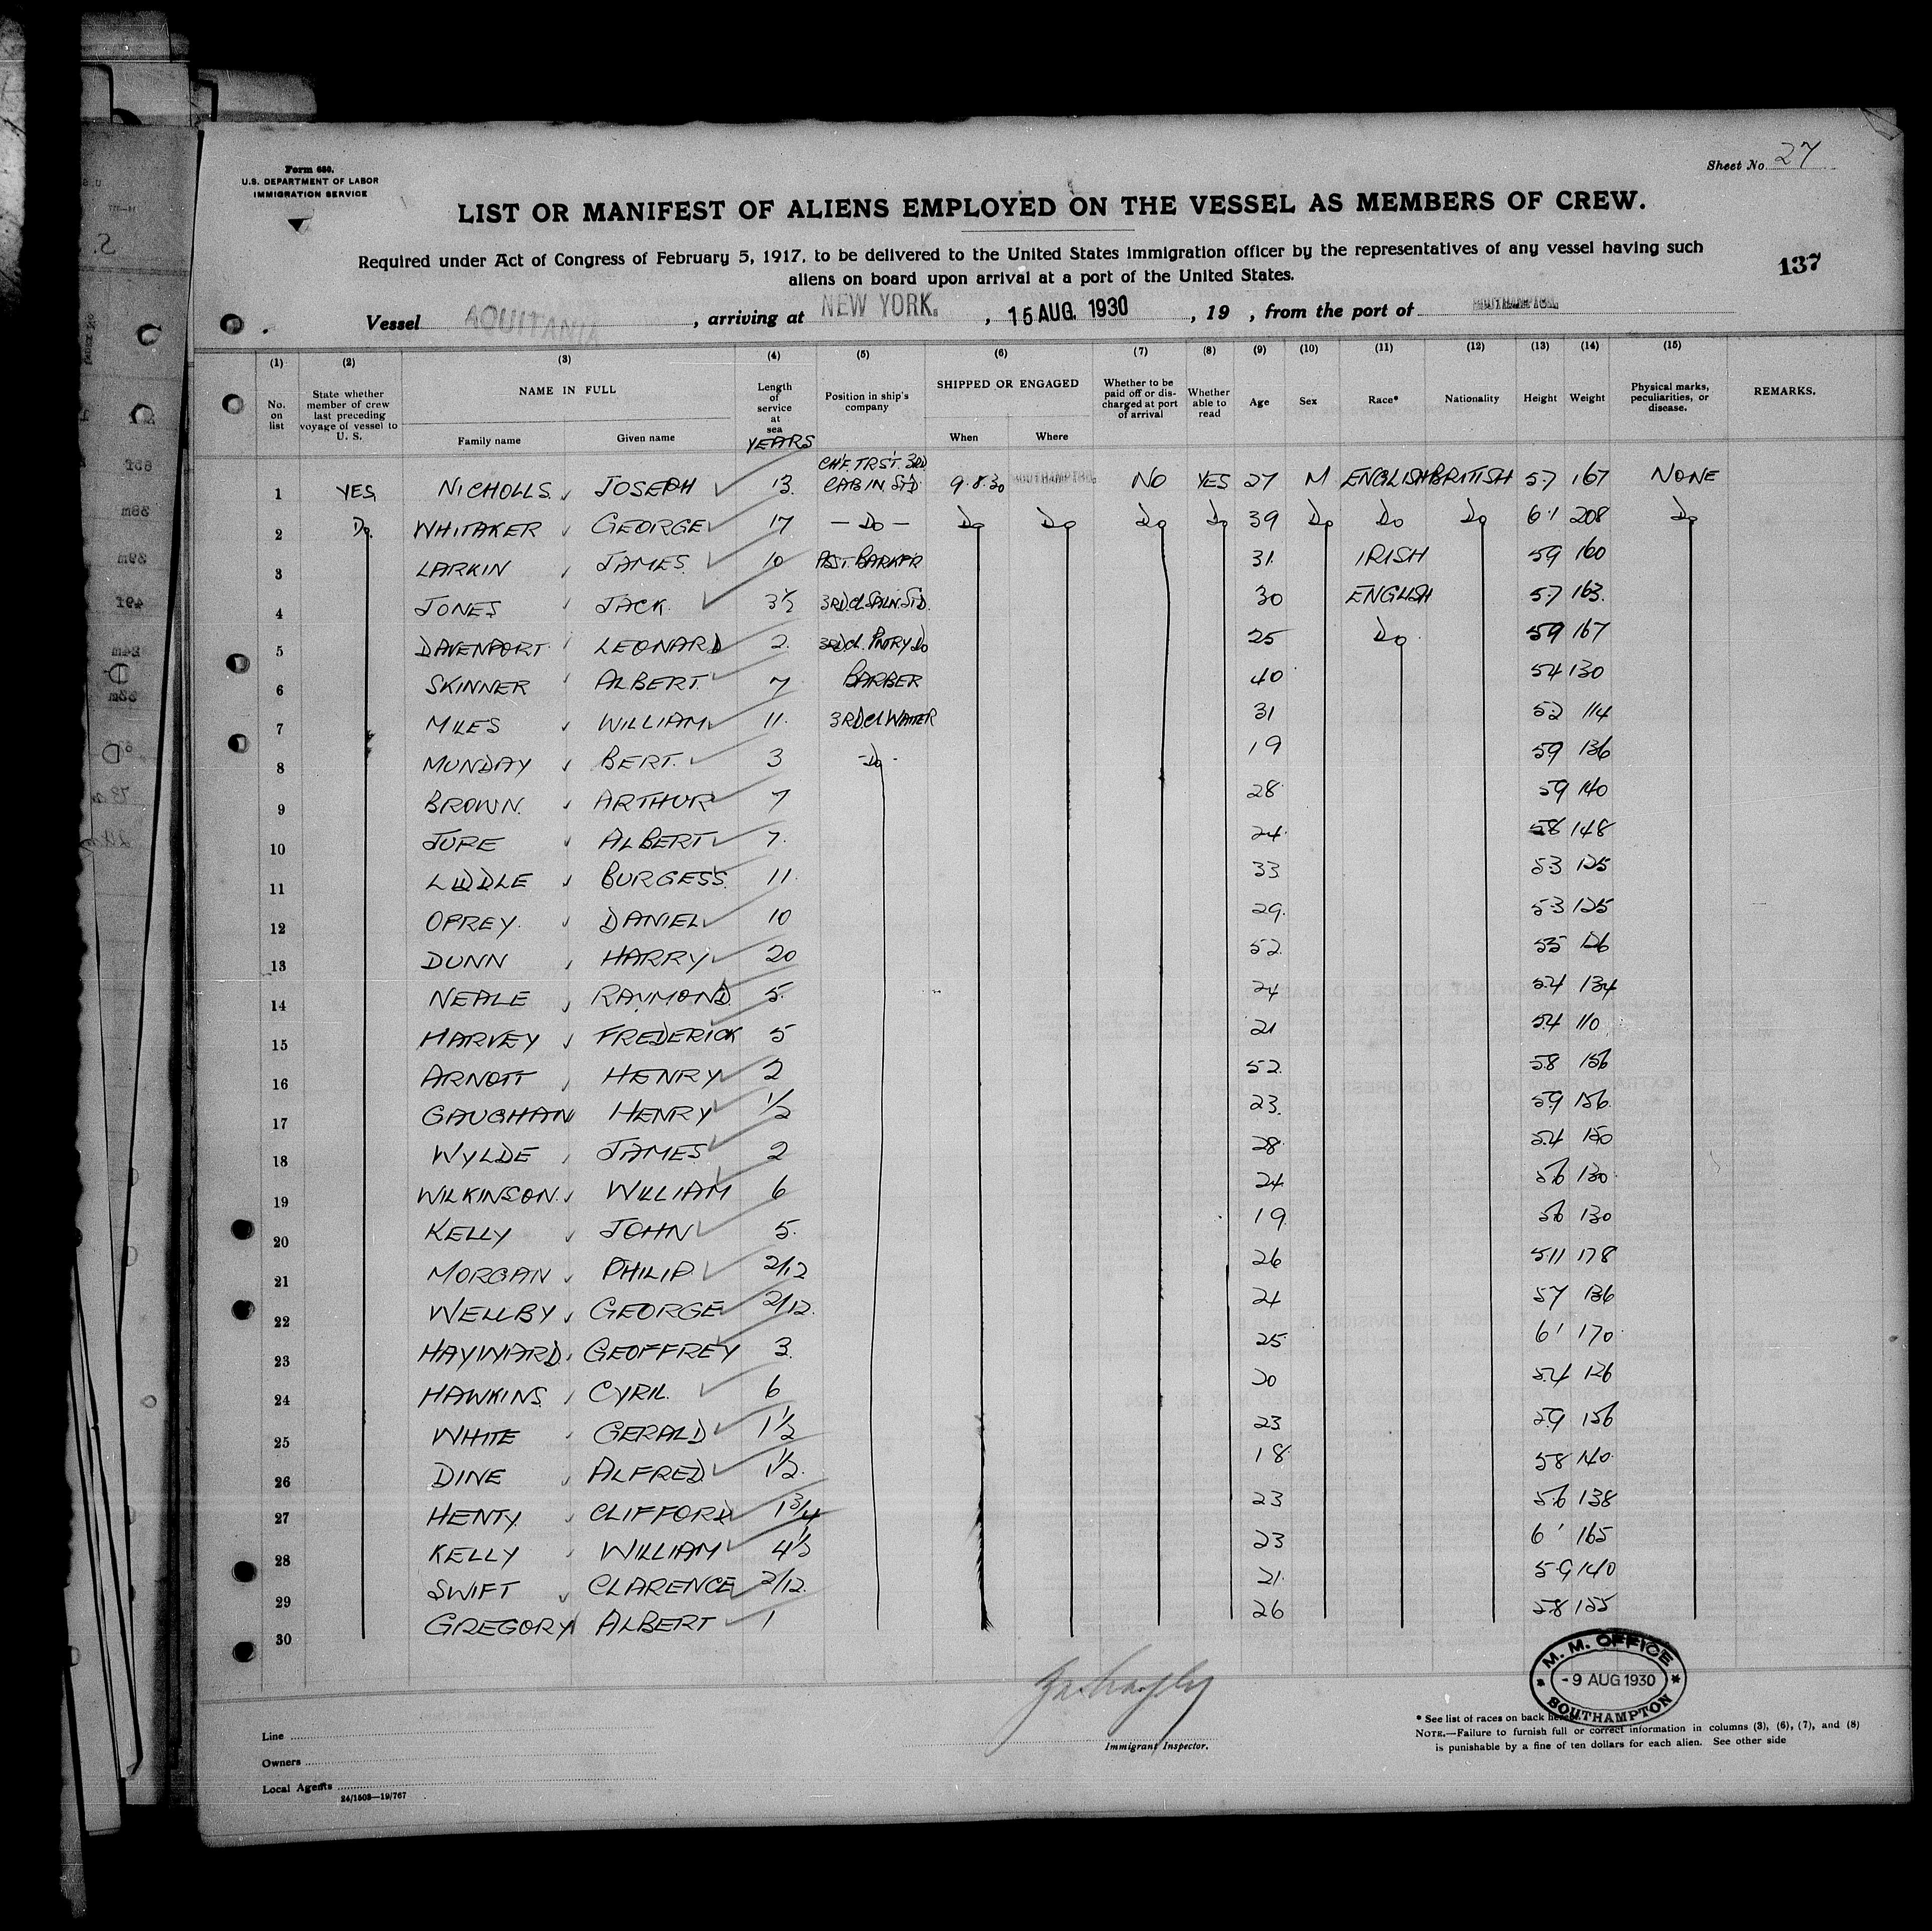 Form 680.
U.S. DEPARTMENT OF LABOR
IMMIGRATION SERVICE
Sheet No. 27
LIST OR MANIFEST OF ALIENS EMPLOYED ON THE VESSEL AS MEMBERS OF CREW.
Required under Act of Congress of February 5, 1917, to be delivered to the United States immigration officer by the representatives of any vessel having such
aliens on board upon arrival at a port of the United States.
137
Vessel AQUITANIA, arriving at NEW YORK., 15 AUG. 1930, 19 , from the port of SOUTHAMPTON.
(1) (2) (3) (4) (5) (6) (7) (8) (9) (10) (11) (12) (13) (14) (15)
No. on list State whether member of crew last preceding voyage of vessel to U. S. NAME IN FULL Family name Given name Length of service at sea YEARS Position in ship's company SHIPPED OR ENGAGED When Where Whether to be paid off or discharged at port of arrival Whether able to read Age Sex Race* Nationality Height Weight Physical marks, peculiarities, or disease. REMARKS.
1 YES NICHOLLS JOSEPH 13 CH'F. TRS'T. 3RD CABIN. ST'D 9.8.30 SOUTHAMPTON. NO YES 27 M ENGLISH BRITISH 5.7 167 NONE
2 Do. WHITAKER GEORGE 17 - Do - Do Do Do Do 39 Do Do Do 6.1 208 Do
3 LARKIN JAMES 10 31 IRISH 59 160
4 JONES JACK 3½ 3RD Cl. SALN. ST'D. 30 ENGLISH 5.7 163.
5 DAVENPORT LEONARD 2. 3RD Cl. PNTRY Do 25 Do 59 167
6 SKINNER ALBERT 7 BARBER 40 54 130
7 MILES WILLIAM 11. 3RD Cl WAITER 31 52 114
8 MUNDAY BERT. 3 -Do- 19 59 136
9 BROWN. ARTHUR 7 28 59 140
10 JURE ALBERT 7. 24 58 148
11 LIDDLE BURGESS. 11. 33 53 125
12 OPREY. DANIEL 10 29. 53 125
13 DUNN HARRY 20 52 55 126
14 NEALE RAYMOND. 5. 24 54 134
15 HARVEY FREDERICK 5 21 54 110
16 ARNOTT HENRY 2 52 58 156
17 GAUGHAN HENRY ½ 23. 59 156
18 WYLDE JAMES 2 28 54 150
19 WILKINSON. WILLIAM 6 24 56 130
20 KELLY JOHN 5. 19 56 130
21 MORGAN PHILIP. 2/12 26 511 178
22 WELLBY GEORGE 2/12. 24 57 136
23 HAYWARD. GEOFFREY 3. 25 6' 170
24 HAWKINS CYRIL. 6 20 54 126
25 WHITE GERALD 1½ 23 59 156
26 DINE ALFRED 1½. 18 58 140.
27 HENTY. CLIFFORD 1¾ 23 5.6 138
28 KELLY WILLIAM 4½ 23 6' 165
29 SWIFT CLARENCE 2/12. 21. 5.9 140
30 GREGORY ALBERT 1 26 58 155
M. M. OFFICE
- 9 AUG 1930
SOUTHAMPTON
Line
Owners
Local Agents
24/1503—19/767
Immigrant Inspector.
* See list of races on back hereof.
NOTE.—Failure to furnish full or correct information in columns (3), (6), (7), and (8)
is punishable by a fine of ten dollars for each alien. See other side